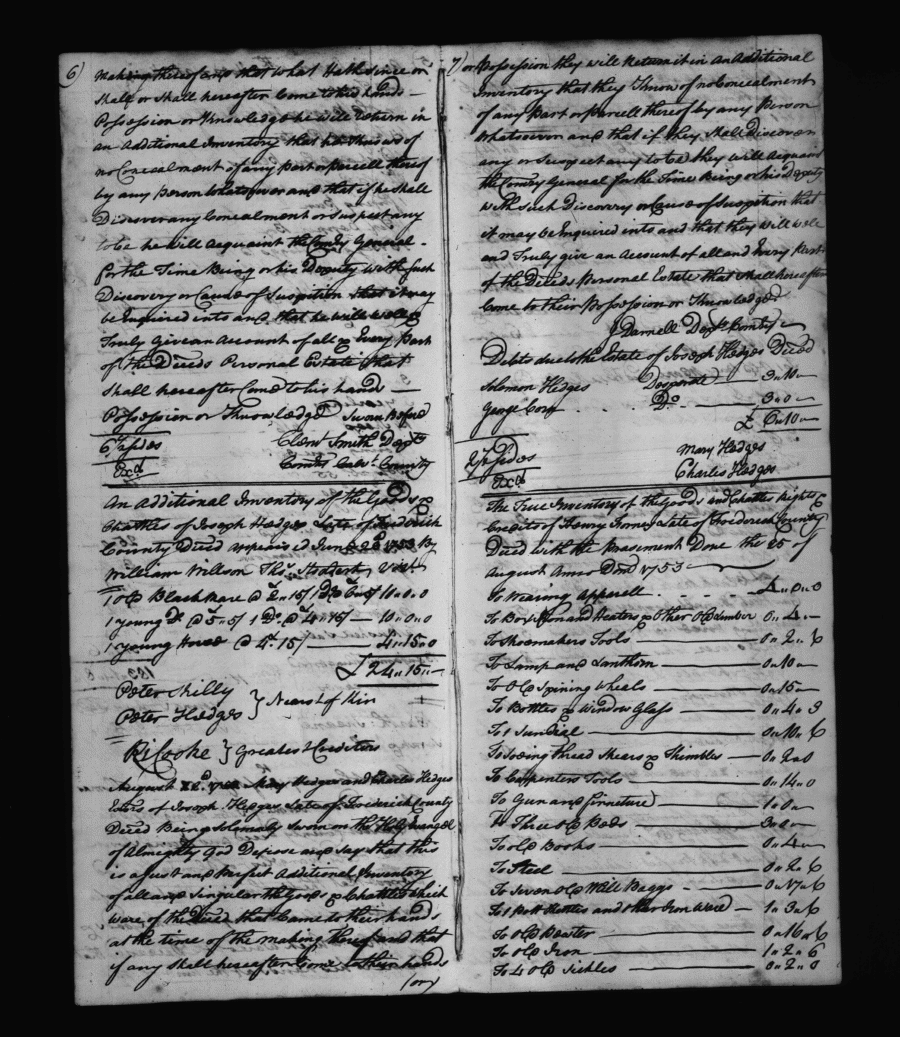 6)
making thereof and that what Hath since or
shall or shall hereafter Come to his hands
Possession or Knowledge he will Return in
an Additional Inventory that he Knows of
no Concealment of any Part or Parcell thereof
by any Person Whatsoever and that if he shall
Discover any Concealment or Suspect any
to be he will Acquaint the Comry General
for the Time Being or his Deputy with such
Discovery or Cause of Suspition that it may
be Enquired into and that he will well &
Truly Give an Account of all & Every Part
of the Deceds Personal Estate that
shall hereafter Come to his hands
Possession or Knowledge Sworn Before
6½ sides Clemt Smith Depty
Exd Comry Calvt County
An Additional Inventory of the Goods &
Chattles of Joseph Hedges Late of Frederick
County Deced appraised June 22d 1753 By
William Willson Thos Stoddert Vizt
1 Old Black Mare 10.0.0
1 young Do @ 5..5/ 1 Do @ 4..15/ — 10..0..0
1 young Horse @ 4.15/ — 4..15..0
£ 24..15..
Peter
Peter Hedges } Nearest of Kin
Ri Cooke } Greatest Creditors
August Mary Hedges and Charles Hedges
Exors of Joseph Hedges Late of Frederick County
Deced Being Solemnly Sworn on the Holy Evangel
of Almighty God Depose and say that this
is a just and Perfect Additional Inventory
of all and singular the goods & Chattles which
were of the Deced that Came to their hands
at the time of the making thereof and that
if any shall hereafter Come to their hands
/or/
7) or Possession they will Return it in an Additional
Inventory that they Know of no Concealment
of any Part or Parcell thereof by any Person
Whatsoever and that if they shall Discover
any or Suspect any to be they will Acquaint
the Comry General for the Time Being or his Deputy
with such Discovery or Cause of Suspition that
it may be Enquired into and that they will well
and Truly give an Account of all and Every Part
of the Deceds Personal Estate that shall hereafter
Come to their Possession or Knowledge
J Darnell Depty Comry
Debts due to the Estate of Joseph Hedges Deced
Solomon Hedges Desperate — 3..10..
George Do — 3..0..
£ 6..10..
2½ sides Mary Hedges
Exd Charles Hedges
The True Inventory of the Goods and Chattles Rights &
Credits of Henry Late of Frederick County
Deced with the Praisement Done the 25 of
August Anno Dom 1753
To Wearing Apparell 4..0..0
To Box Iron and Heaters & Other Old Lumber 0..4..
To Shoemakers Tools 0..2..6
To Lamp and Lanthorn 0..10..
To Old Spining Wheals 0..15..
To Bottles & Window Glass 0..4..3
To 1 Sun Dial 0..10..6
To Sowing thread Shears & Thimbles 0..2..0
To Carpenters Tools 0..14..0
To Gun and Furniture 1..0..
To Three Old Beds 3..0..
To Old Books 0..4..
To Steel 0..2..6
To Seven Old Mill Baggs 0..17..6
To 1 Pott Kettles and other Iron Ware 1..3..6
To Old Pewter 0..16..6
To Old Iron 1..2..6
To 4 Old Sickles 0..2..0